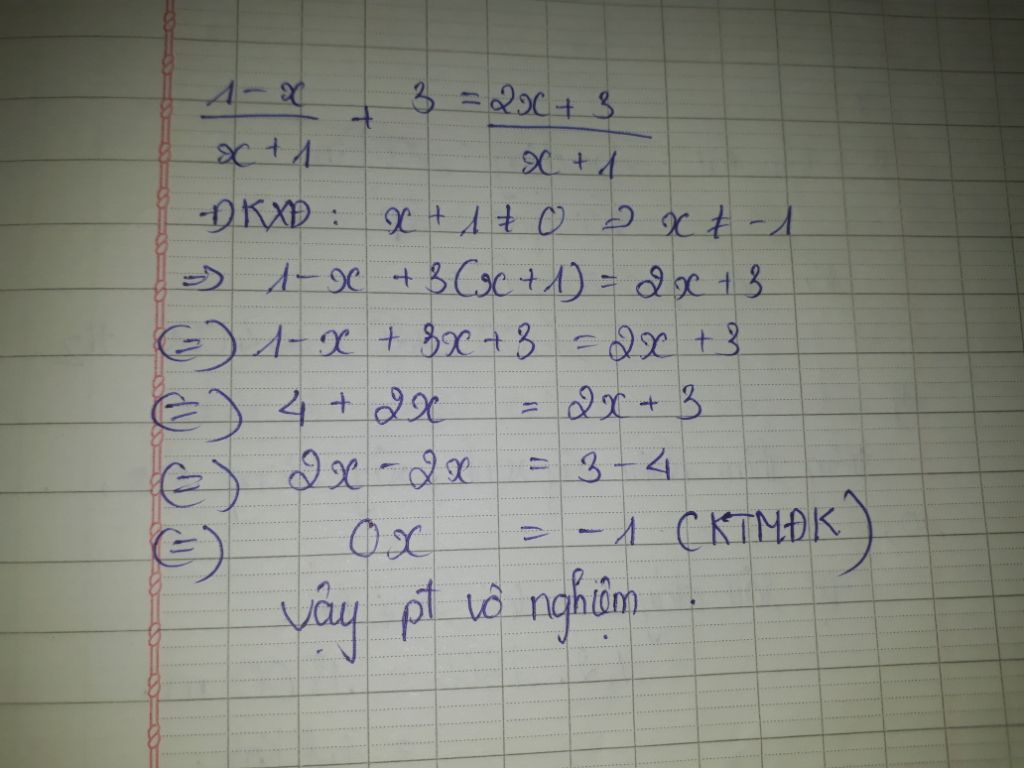 1-x/x+1 + 3 = 2x+3/x+1
ĐKXĐ: x+1≠0 => x≠-1
=> 1-x +3(x+1)= 2x+3
(=) 1-x + 3x+3 =2x+3
(=) 4+2x = 2x+3
(=) 2x-2x = 3-4
(=) 0x = -1 (KTMĐK)
Vậy pt vô nghiệm.